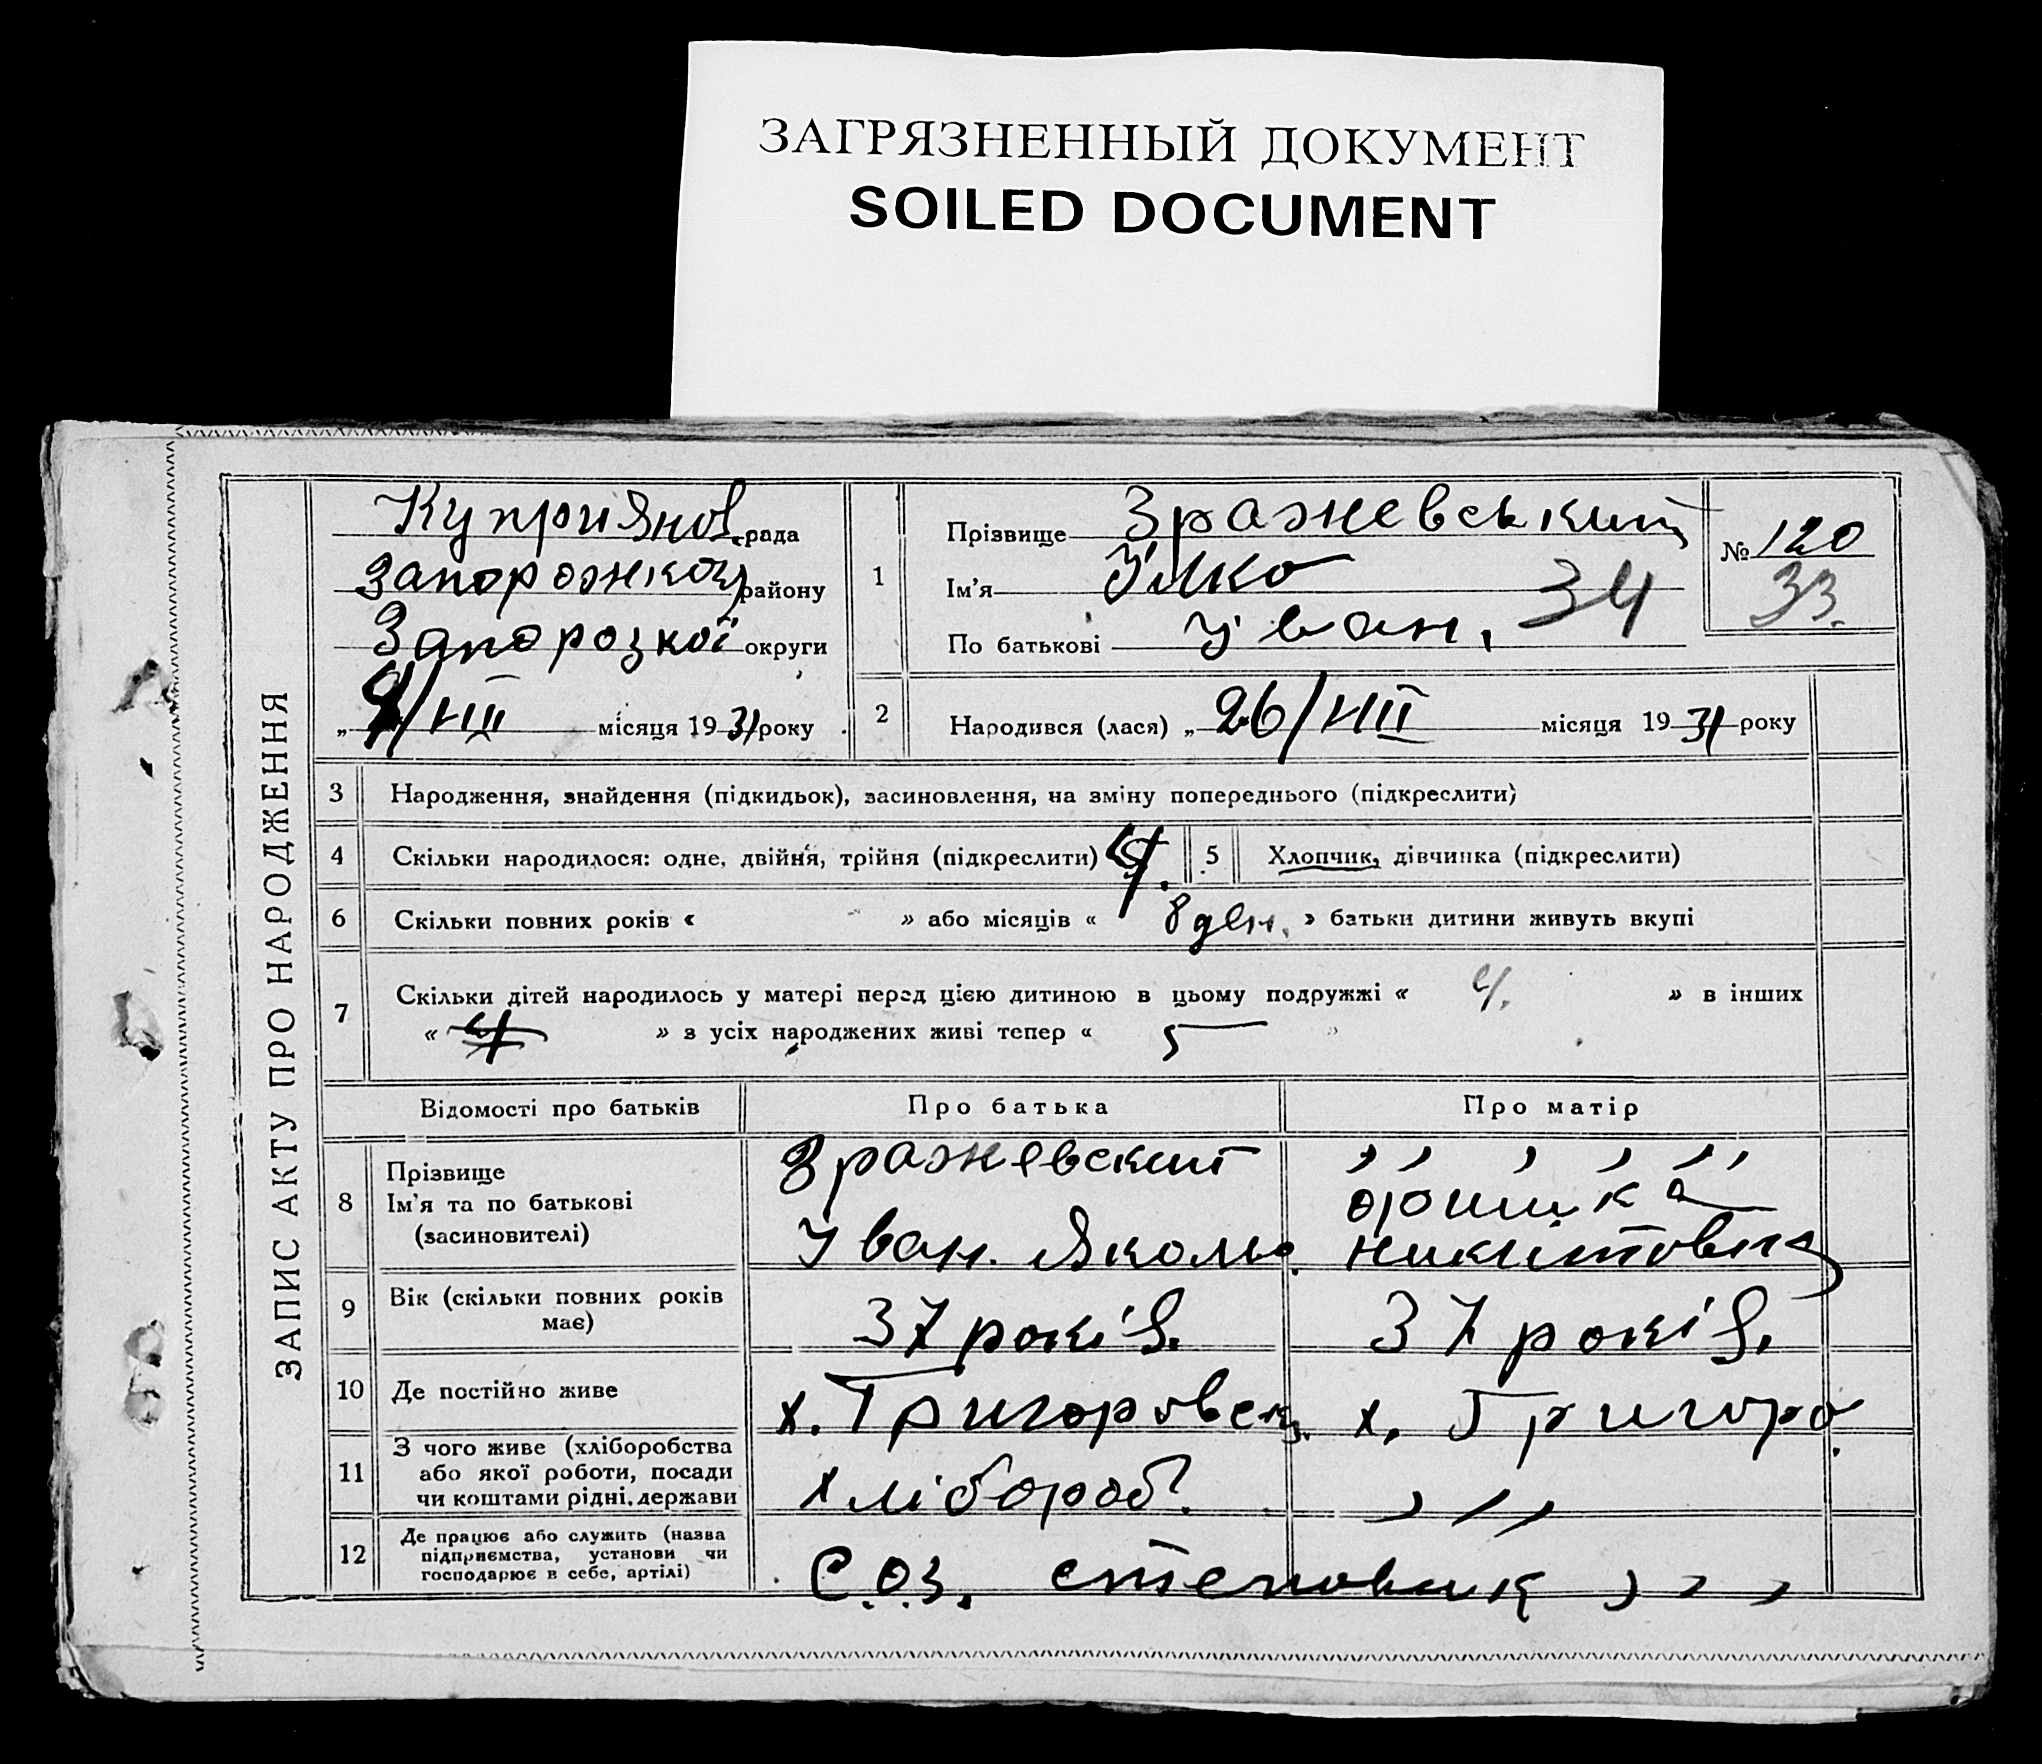 ЗАГРЯЗНЕННЫЙ ДОКУМЕНТ
SOILED DOCUMENT
ЗАПИС АКТУ ПРО НАРОДЖЕННЯ
Куприянов. рада
району
Запорозкої округи
/VIII місяця 1931 року
1 Прізвище Зражевський
Ім'я Ілко 34
По батькові Іван.
№ 120
33.
2 Народився (лася) „ 26/VIII місяця 1931 року
3 Народження, знайдення (підкидьок), засиновлення, на зміну попереднього (підкреслити)
4 Скільки народилося: одне, двійня, трійня (підкреслити)
5 Хлопчик, дівчинка (підкреслити)
6 Скільки повних років « » або місяців « 8 ден. » батьки дитини живуть вкупі
7 Скільки дітей народилось у матері перед цією дитиною в цьому подружжі « 4. » в інших
« » з усіх народжених живі тепер « 5 »
Відомості про батьків Про батька Про матір
8 Прізвище
Ім'я та по батькові
(засиновителі)
Зражевский
Іван.
" " "
Оришка
Никитовна
9 Вік (скільки повних років
має)
37 років. 37 років.
10 Де постійно живе х. Григоровск. х. Григоро.
11 З чого живе (хліборобства
або якої роботи, посади
чи коштами рідні, держави
хлібороб. " "
12 Де працює або служить (назва
підприємства, установи чи
господарює в себе, артілі)
С.О.З. степовик " "